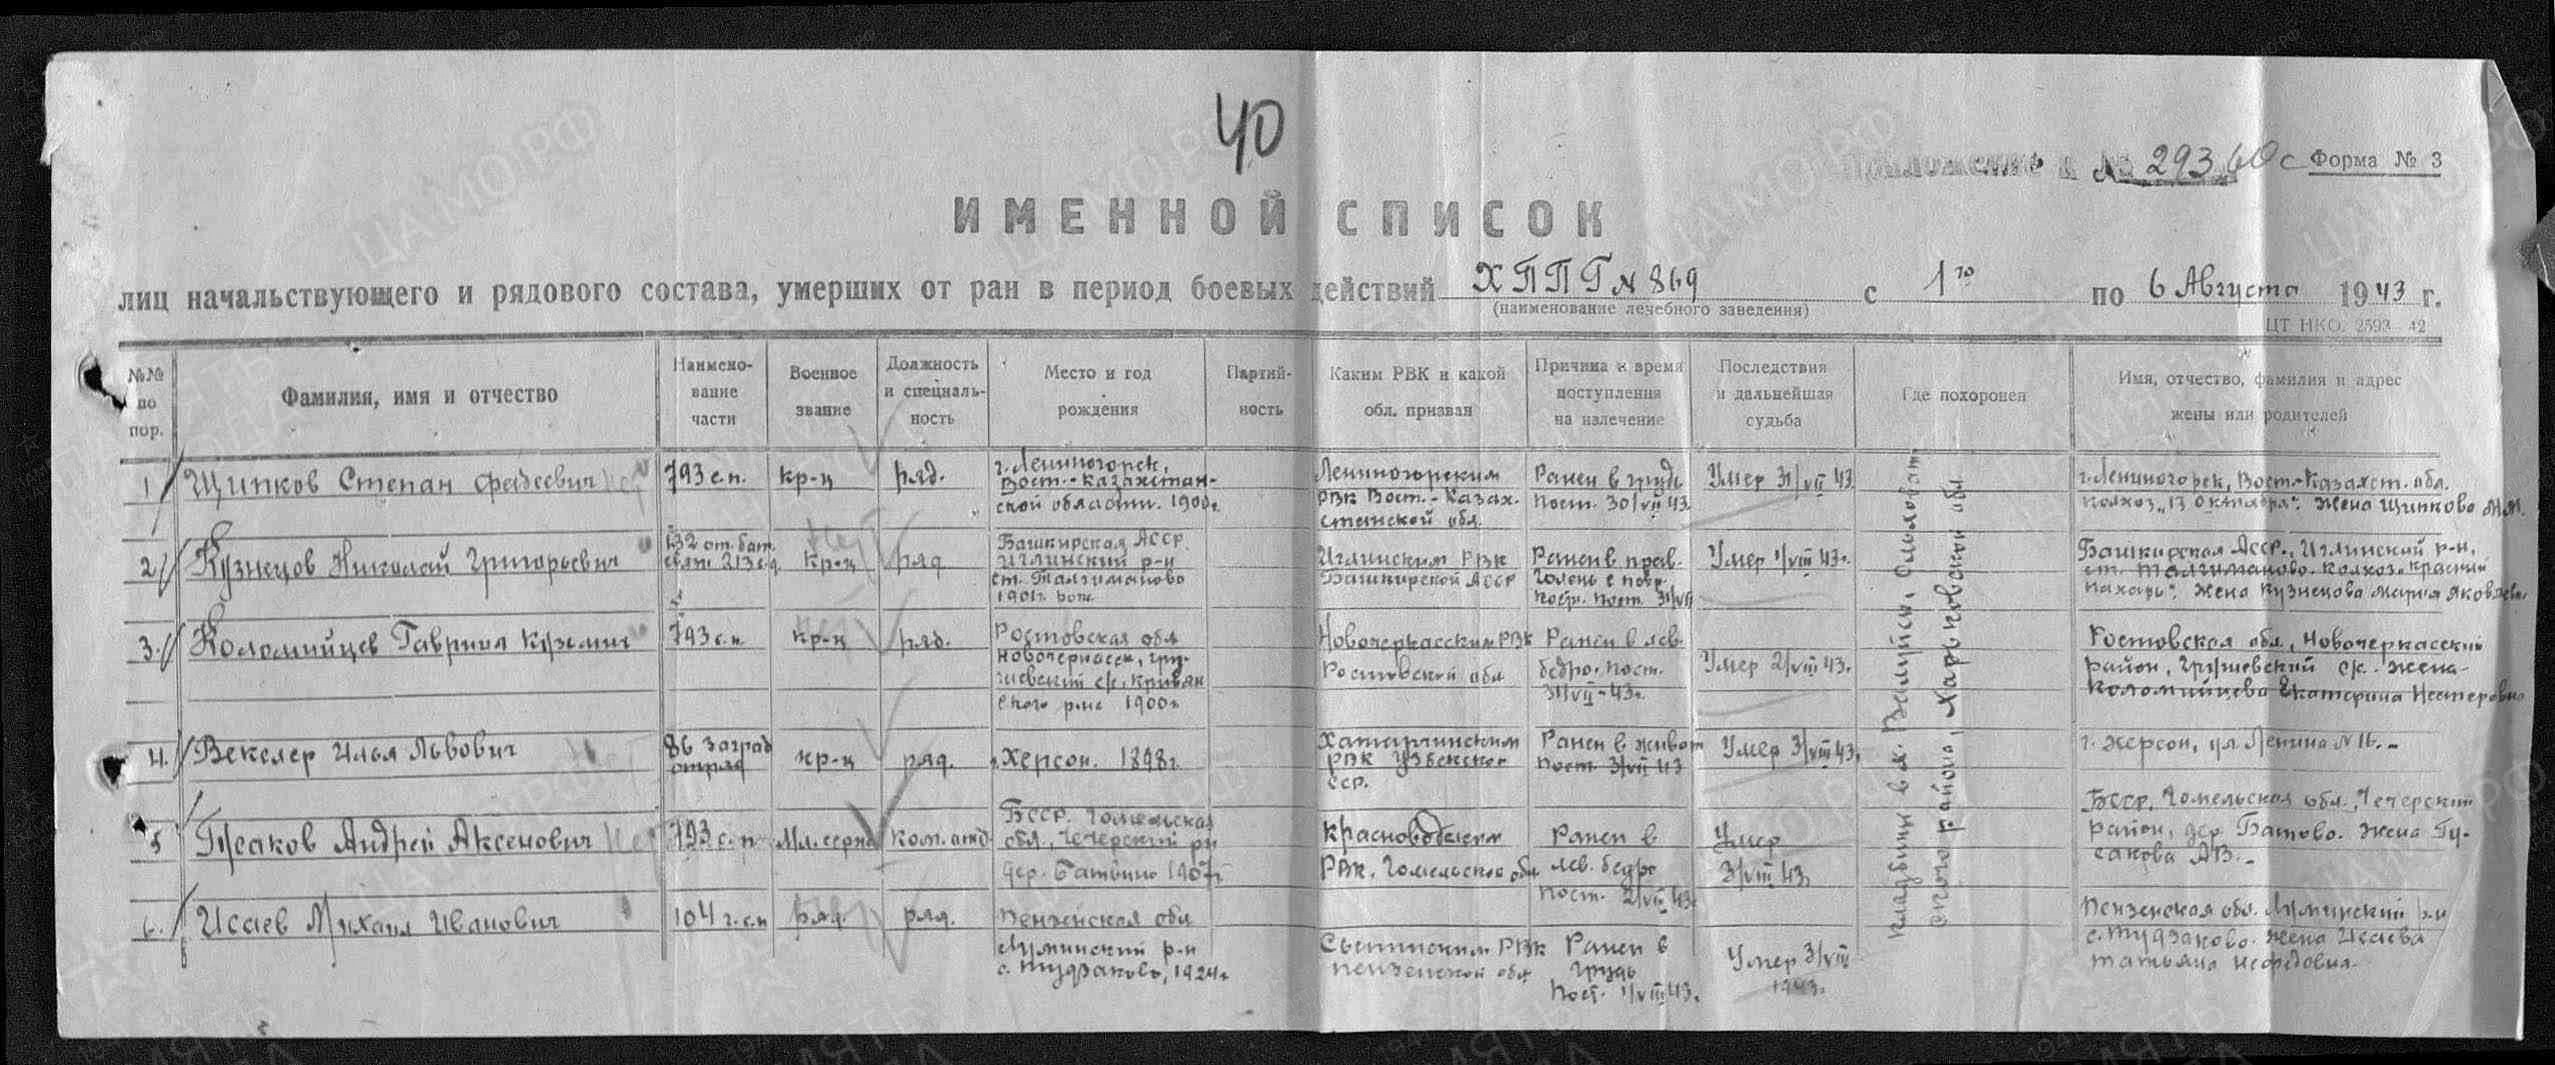 40
Приложение к № 29360с Форма № 3
ИМЕННОЙ СПИСОК
лиц начальствующего и рядового состава, умерших от ран в период боевых действий ХППГ N 869 с 1го по 6 Августа 1943 г.
(наименование лечебного заведения)
ЦТ НКО. 2593—42
№№ по пор.
Фамилия, имя и отчество
Наимено-
вание
части
Военное
звание
Должность
и специаль-
ность
Место и год
рождения
Партий-
ность
Каким РВК и какой
обл. призван
Причина и время
поступления
на излечение
Последствия
и дальнейшая
судьба
Где похоронен
Имя, отчество, фамилия и адрес
жены или родителей
1 Щипков Степан Фадеевич
793 с.п.
кр-ц
ряд.
г. Лениногорск,
Вост.-Казахстан-
ской области. 1900г.
Лениногорским
РВК Вост.-Казах-
станской обл.
Ранен в грудь
пост. 30/VII 43.
Умер 31/VII 43
г. Лениногорск, Вост.-Казахст. обл.
колхоз „13 Октября". Жена Щипкова М.М.
2 Кузнецов Николай Григорьевич
132 от. бат.
связи 213 с.д
кр-ц
ряд
Башкирская АССР.
Иглинский р-н
ст. Талгиманово
1901г. рож.
Иглинским РВК
Башкирской АССР
Ранен в прав.
голень с повр.
кости. пост. 31/VII
Умер 1/VIII 43г.
Башкирская АССР., Иглинский р-н,
ст. Талгиманово. колхоз „Красный
пахарь". Жена Кузнецова Мария Яковлевн.
3. Коломийцев Гавриил Кузьмич
793 с.п
кр-ц
ряд.
Ростовская обл
Новочеркасск, Гру-
шевский с/с, Кривян
ского р-на 1900г
Новочеркасским РВК
Ростовской обл
Ранен в лев.
бедро, пост.
31/VII-43г.
Умер 2/VIII 43г.
Ростовская обл., Новочеркасский
район, Грушевский с/с. Жена-
Коломийцева Екатерина Нестеровна
4. Векслер Илья Львович
86 заград
отряд
кр-ц
ряд.
г. Херсон. 1898г.
Хатырчинским
РВК Узбекской
ССР.
Ранен в живот
пост. 3/VII 43
Умер 3/VIII 43.
г. Херсон, ул Ленина N 16.-
5 Гусаков Андрей Аксенович
793 с.п
Мл. серж
ком. отд
БССР. Гомельская
обл., Чечерский р-н
дер. Батвино 1907г.
РВК. Гомельской обл
Ранен в
лев. бедро
пост. 2/VIII 43г.
Умер
3/VIII 43г.
БССР. Гомельская обл., Чечерский
район, дер. Батово. Жена Гу-
сакова А.В.-
6. Исаев Михаил Иванович
104 г.с.п
ряд.
ряд.
Пензенская обл
Лунинский р-н
1924г
РВК
Пензенской обл
Ранен в
грудь
пост. 1/VIII 43.
Умер 3/VIII
1943г.
Пензенская обл. Лунинский р-н
Жена Исаева
Татьяна
Кладбище в
ского района, Харьковской обл.